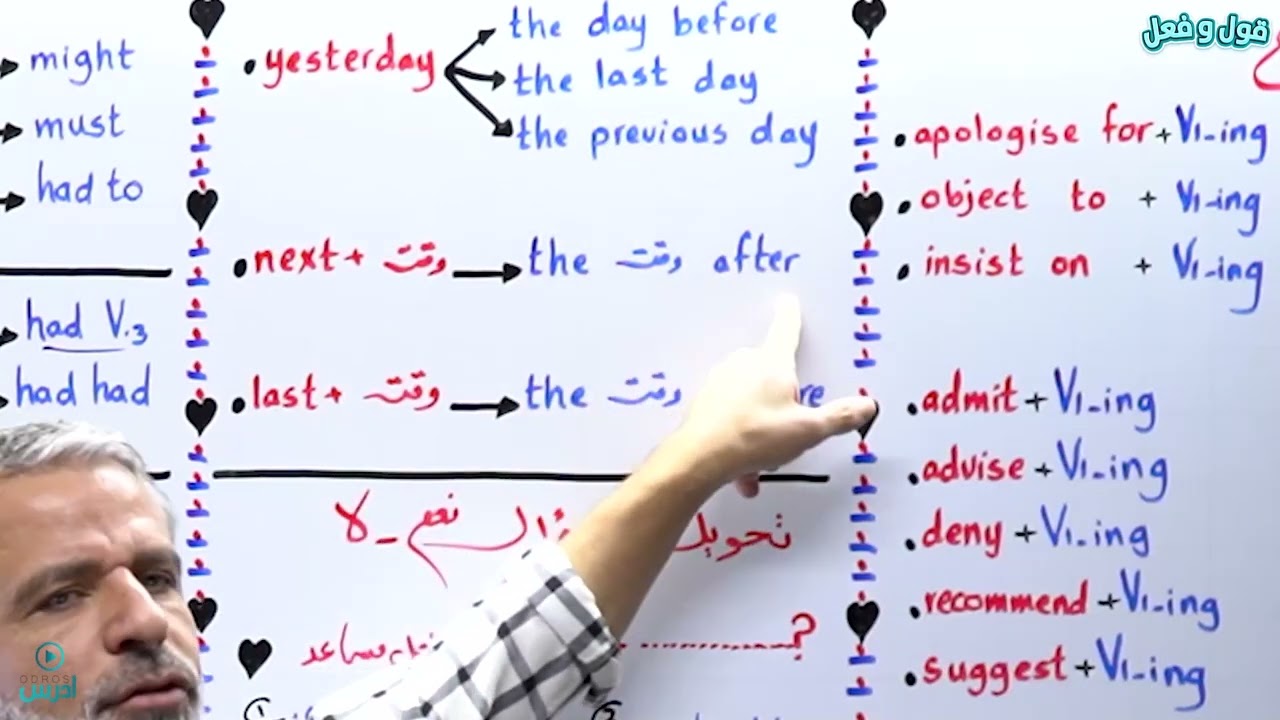 قول و فعل
might
must
had to
had V.3
had had
• yesterday
the day before
the last day
the previous day
• next + وقت → the وقت after
• last + وقت → the وقت
نعم - لا
?
• apologise for + V1-ing
• object to + V1-ing
• insist on + V1-ing
• admit + V1-ing
• advise + V1-ing
• deny + V1-ing
• recommend + V1-ing
• suggest + V1-ing
ODROS
ادرس